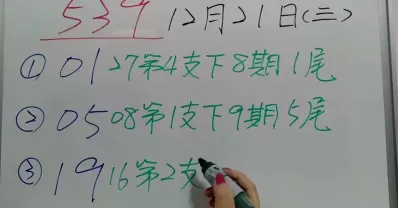 539 12月21日(三)
① 01 27第4支下8期1尾
② 05 08第1支下9期5尾
③ 19 16第2支